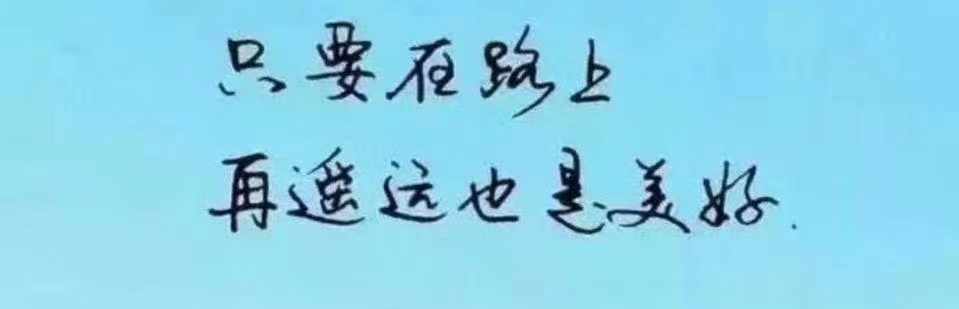 只要在路上
再遥远也是美好.